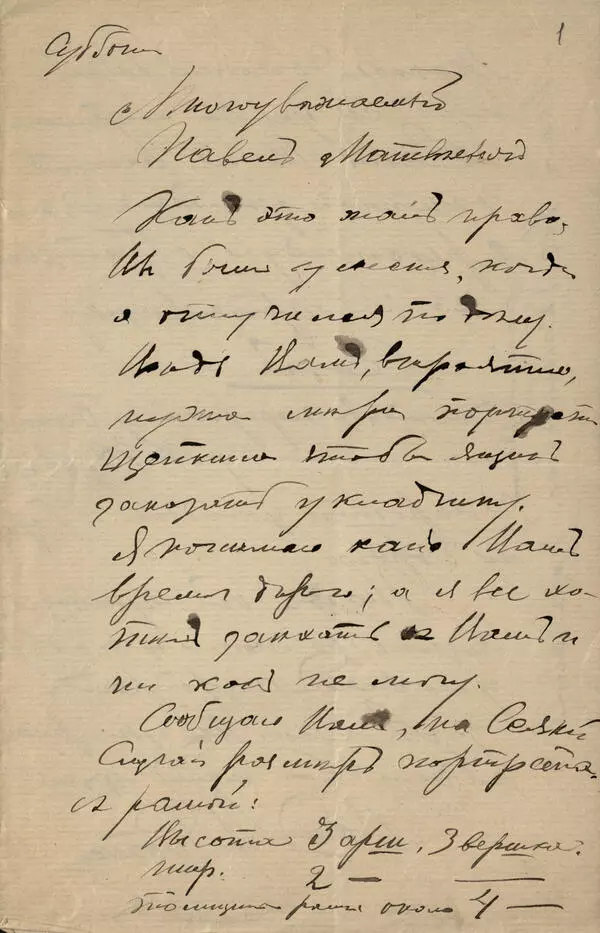 Суббота
1
Многоуважаемый
Павелъ Матвѣевичъ
Какъ это жаль право,
Вы были у меня, когда
я отлучился по дому.
Вамъ, вѣроятно,
нужна мѣра портрета
Щепкина чтобы ящикъ
заказать укладчику.
Я понимаю какъ Вамъ
время дорого; а я все хо-
тѣлъ заѣхать къ Вамъ и
ни какъ не могу.
Сообщаю Вамъ, на всякій
случай размѣръ портрета
съ рамой:
Высота 3 арш. 3 вершка.
шир. 2 — —
толщина рамы около 4 —